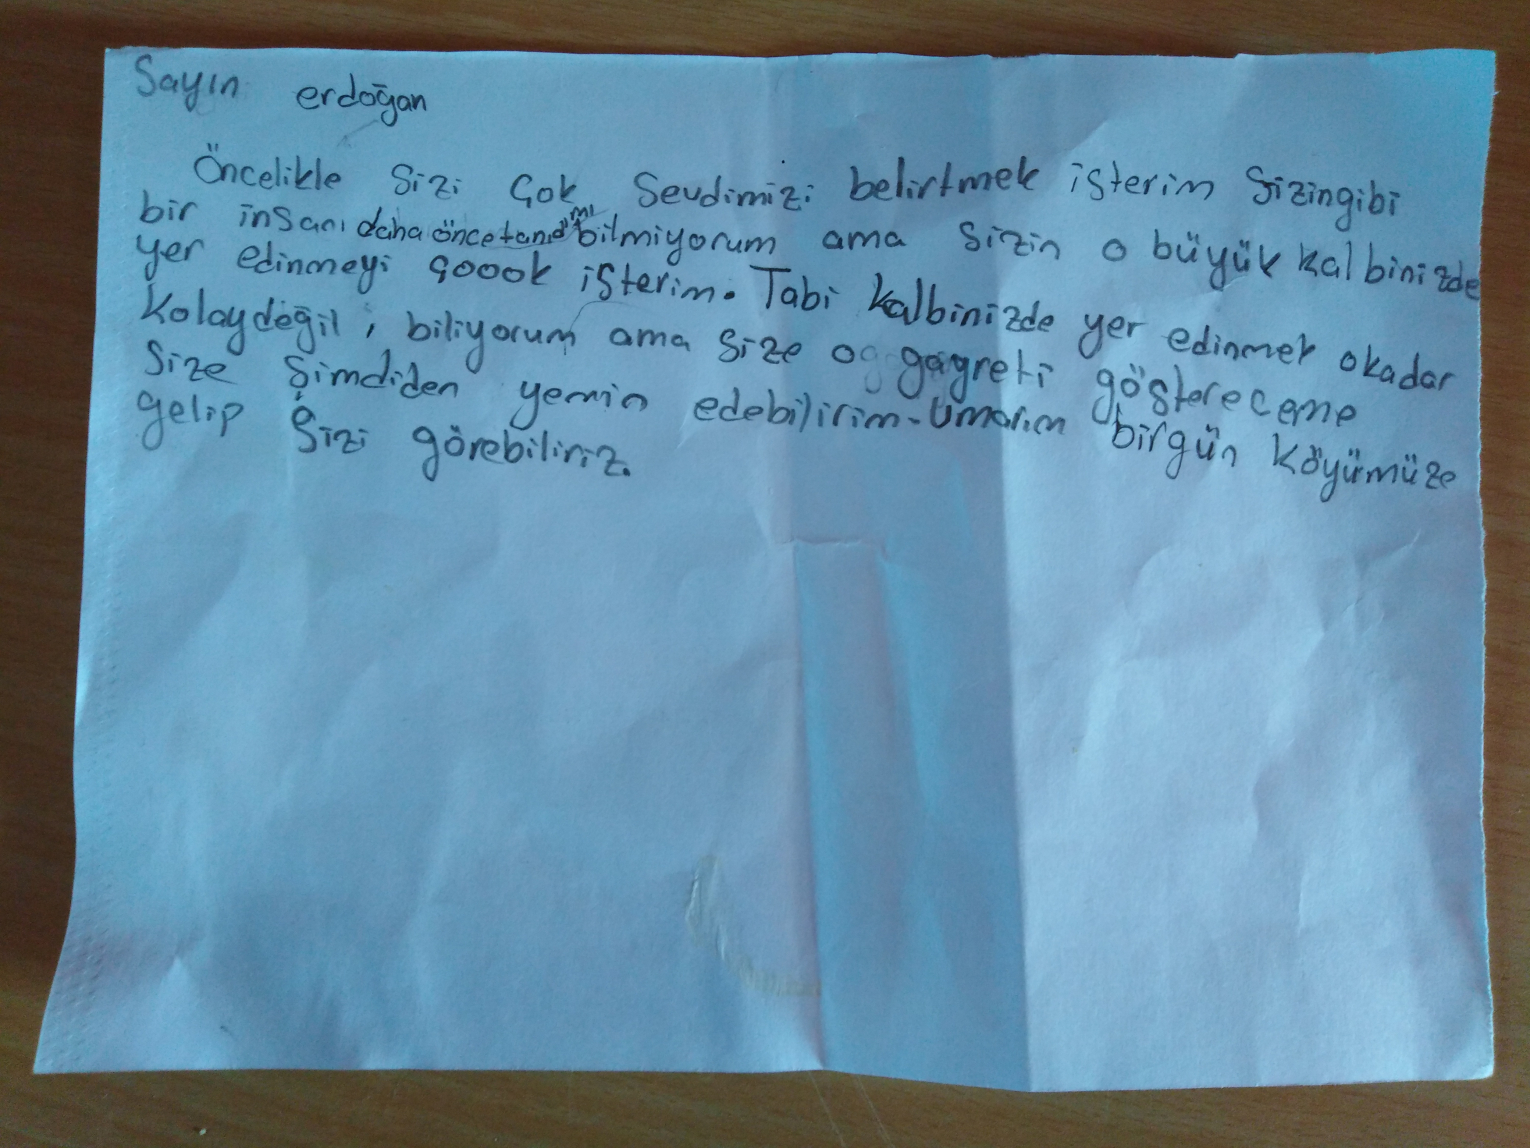 Sayın erdoğan
Öncelikle sizi çok Sevdimizi belirtmek işterim Sizingibi
bir insanı daha önce tanıdımı bilmiyorum ama sizin o büyük kalbinizde
yer edinmeyi çoook işterim. Tabi kalbinizde yer edinmek okadar
kolaydeğil, biliyorum ama size o gayreti göstereceme
size şimdiden yemin edebilirim. Umarım birgün köyümüze
gelip Sizi görebiliriz.